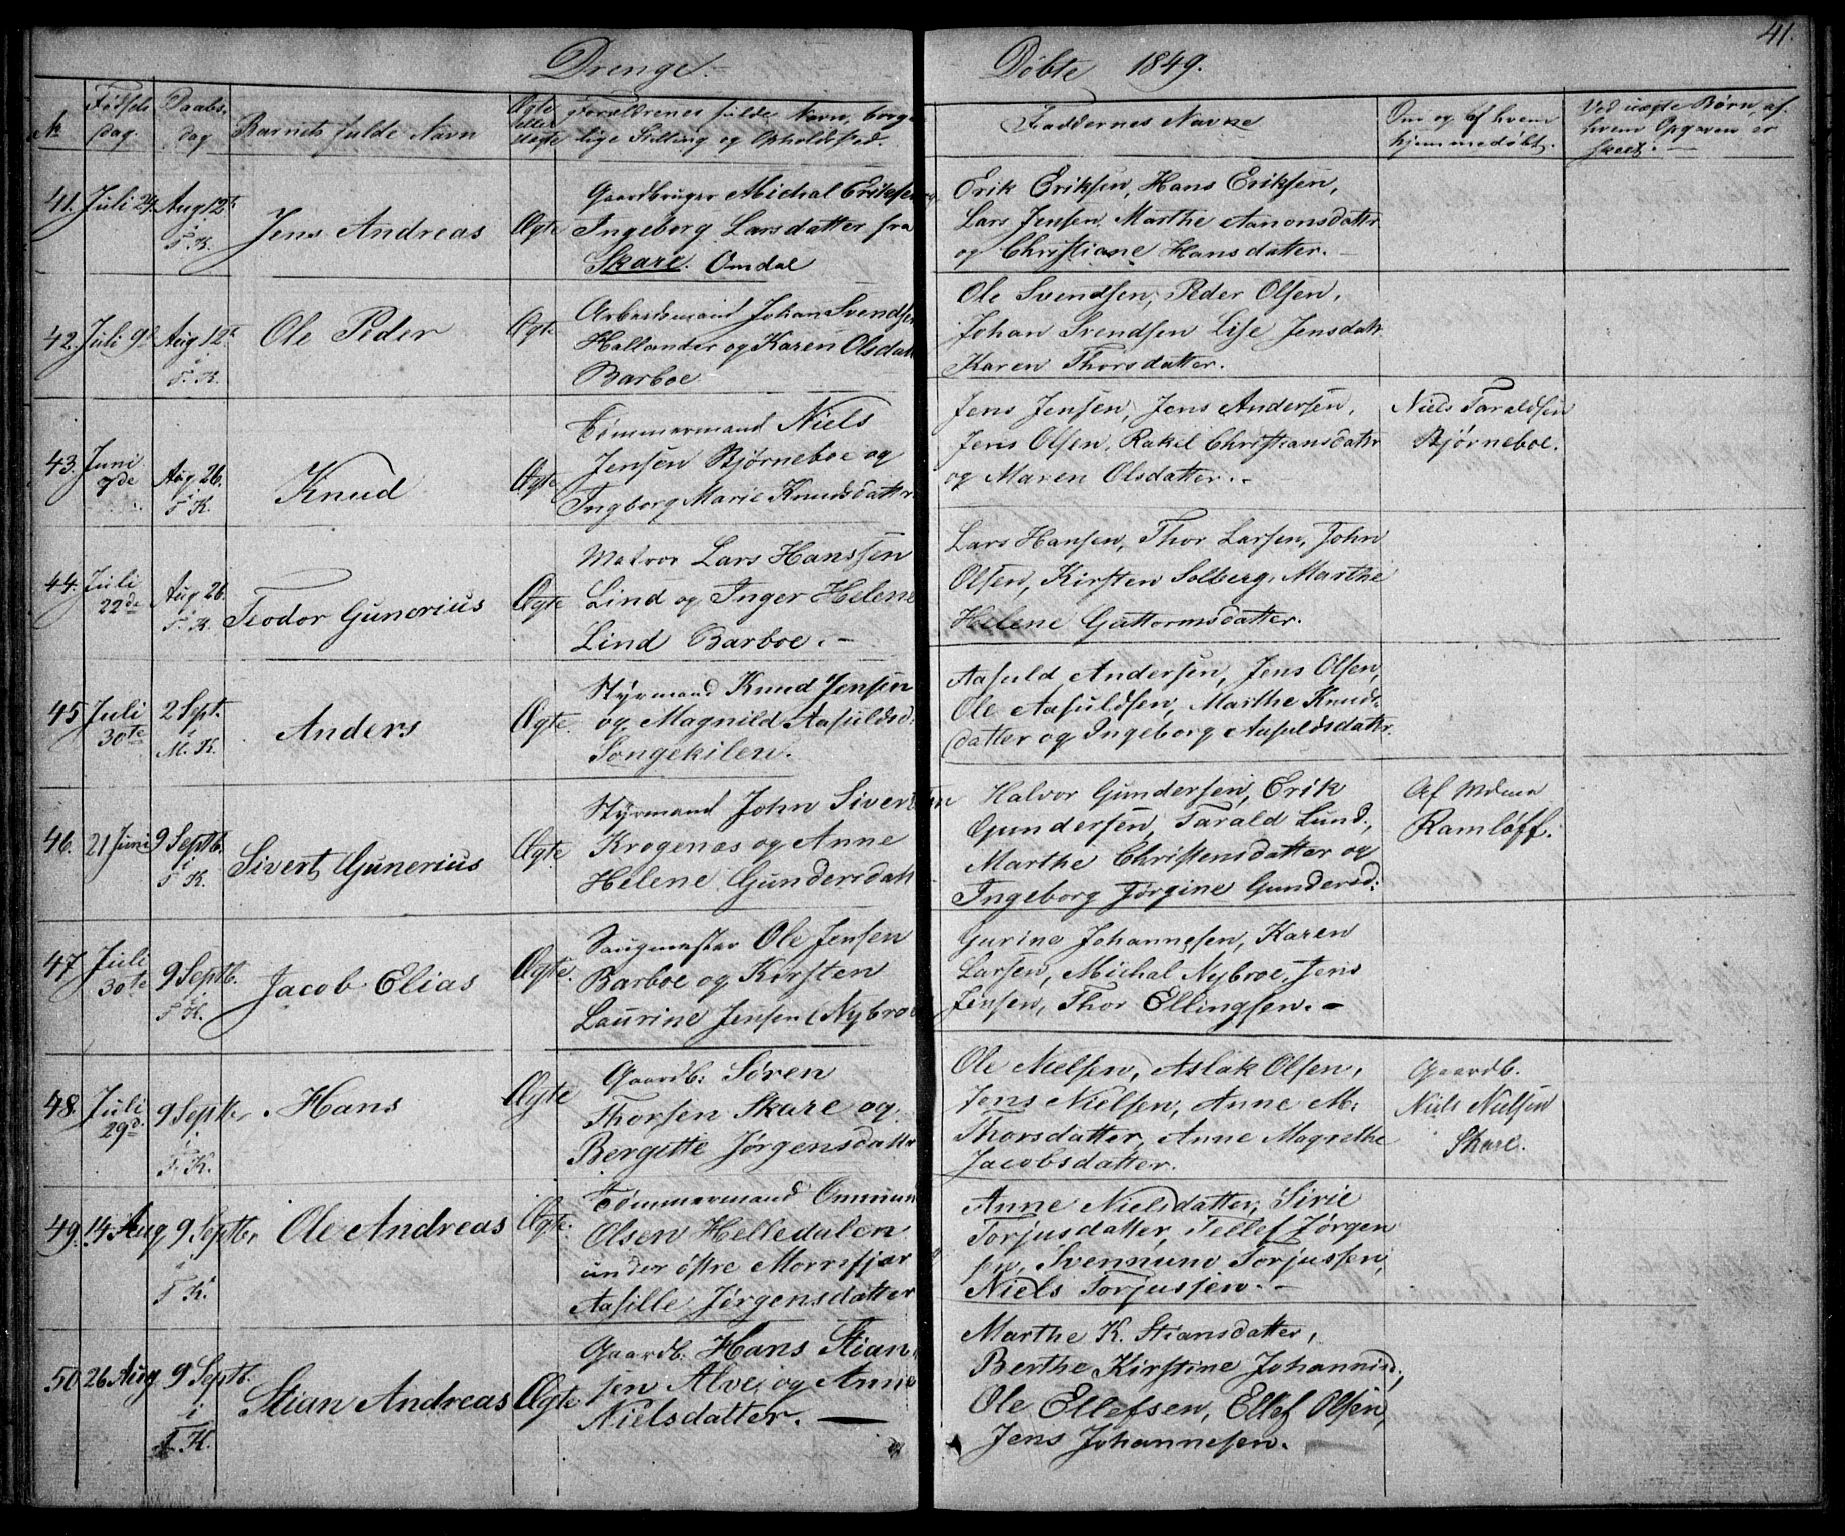 41.
Drenge.
Døbte 1849.
No
Fødsels Dag.
Daabs dag
Barnets fulde Navn
Ægte eller Uægte
Forældrenes fulde Navn, borger
lige Stilling og Opholdssted.
Faddernes Navne
Om og af hvem
hjemmedøbt.
Ved uægte Børn, af
hvem Opgaven er
skeet.
41. Juli 29. Aug 12te i T. K.
Jens Andreas
Ægte
Gaardbruger Michal Eriksen og
Ingeborg Larsdatter fra
Skare. Omdal
Erik Eriksen, Hans Eriksen,
Lars Jensen, Marthe Aanonsdatter
og Christiane Hansdatter.
42. Juli 9de Aug 12te i T. K.
Ole Peder
Ægte
Arbeidsmand Johan Svendsen
Hallander og Karen Olsdatt
Barboe
Ole Svendsen, Peder Olsen,
Johan Svendsen Lise Jensdatt
Karen Thorsdatter.
43. Juni 7de Aug 26. i T. K.
Knud
Ægte
Tømmermand Niels
Jensen Bjørneboe og
Ingborg Marie Knudsdatter
Jens Jensen, Jens Andersen,
Jens Olsen, Rakel Christiansdatter
og Maren Olsdatter.
Niels Taraldsen
Bjørneboe.
44. Juli 22de Aug 26. i T. K.
Teodor Gunerius
Ægte
Matros Lars Hanssen
Lind og Inger Helene
Lind Barboe.
Lars Hansen, Thor Larsen, John
Olsen, Kirsten Solberg, Marthe
Helene Guttormsdatter.
45 Juli 30te 2 Sept. i M. K.
Anders
Ægte.
Styrmand Knud Jensen
og Magnild Aasuldsd:
Songekilen.
Aasuld Andersen, Jens Olsen,
Ole Aasuldsen, Marthe Knuds-
datter og Ingeborg Aasuldsdatter.
46. 21 Juni 9 Septb. i T. K.
Sivert Gunerius
Ægte
Styrmand John Sivertsen
Krogenæs og Anne
Helene Gundersdatt
Halvor Gundersen, Erik
Gundersen, Tarald Lund,
Marthe Christensdatter og
Ingeborg Jørgine Gundersd:
Af Mdma
Ramløff.
47. Juli 30te 9 Septb. i T. K.
Jacob Elias
Ægte.
Saugmester Ole Jensen
Barboe og Kirsten
Laurine Jensen (Nybroe
Gurine Johannesen, Karen
Larsen, Michal Nybroe, Jens
Jensen, Thor Ellingsen.
48. Juli 29d. 9 Septb. i T. K.
Hans
Ægte
Gaardb: Søren
Thorsen Skare og
Bergitte Jørgensdatter
Ole Nielsen, Aslak Olsen,
Jens Nielsen, Anne M:
Thorsdatter, Anne Magrethe
Jacobsdatter.
Gaardb.
Niels Nielsen
Skare.
49. 14 Aug 9 Septb. i T K.
Ole Andreas
Ægte.
Tømmermand Ommun
Olsen Helledalen
under østre Mornsfjær
Aasille Jørgensdatter
Anne Nielsdatter, Sirie
Torjusdatter, Tellef Jørgen
sen, Svennund Torjussen,
Niels Torjussen.
50 26 Aug 9 Septb. i T. K.
Stian Andreas
Ægte
Gaardb. Hans Stian
sen Alve og Anne
Nielsdatter.
Marthe K. Stiansdatter,
Berthe Kirstine Johannisd.,
Ole Ellefsen, Ellef Olsen,
Jens Johannesen.